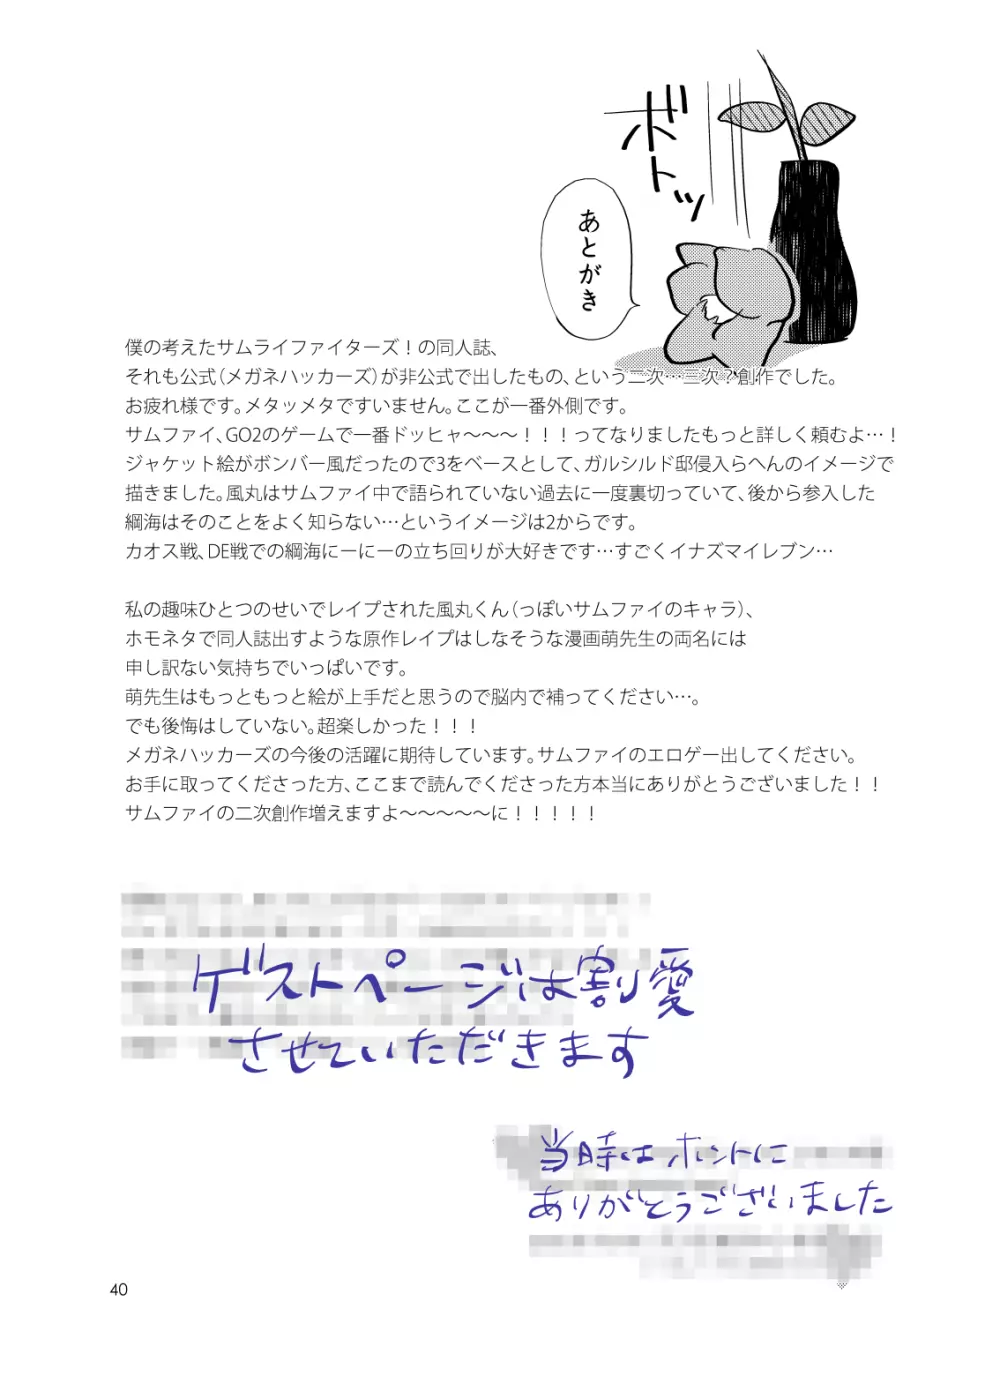 ボトッ
あとがき
僕の考えたサムライファイターズ！の同人誌、
それも公式（メガネハッカーズ）が非公式で出したもの、という二次…三次？創作でした。
お疲れ様です。メタッメタですいません。ここが一番外側です。
サムファイ、GO2のゲームで一番ドッヒャ～～～！！！ってなりましたもっと詳しく頼むよ…！
ジャケット絵がボンバー風だったので3をベースとして、ガルシルド邸侵入らへんのイメージで
描きました。風丸はサムファイ中で語られていない過去に一度裏切っていて、後から参入した
綱海はそのことをよく知らない…というイメージは2からです。
カオス戦、DE戦での綱海にーにーの立ち回りが大好きです…すごくイナズマイレブン…
私の趣味ひとつのせいでレイプされた風丸くん（っぽいサムファイのキャラ）、
ホモネタで同人誌出すような原作レイプはしなそうな漫画萌先生の両名には
申し訳ない気持ちでいっぱいです。
萌先生はもっともっと絵が上手だと思うので脳内で補ってください…。
でも後悔はしていない。超楽しかった！！！
メガネハッカーズの今後の活躍に期待しています。サムファイのエロゲー出してください。
お手に取ってくださった方、ここまで読んでくださった方本当にありがとうございました！！
サムファイの二次創作増えますよ～～～～～に！！！！！
ゲストページは割愛
させていただきます
当時はホントに
ありがとうございました
40